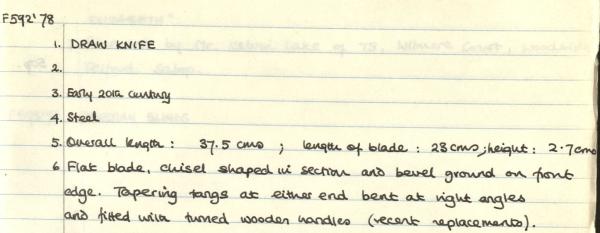 F592'78
1. DRAW KNIFE
2.
3. Early 20th century
4. Steel
5. Overall length: 37.5 cms ; length of blade: 23 cms; height: 2.7 cms
6 Flat blade, chisel shaped in section and bevel ground on front
edge. Tapering tangs at either end bent at right angles
and fitted with turned wooden handles (recent replacements).